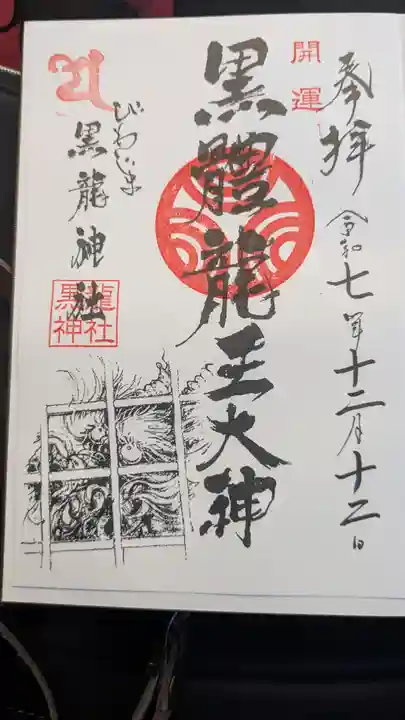 奉拝
令和七年十二月十二日
開運
黒體龍王大神
黒龍神社
黒龍
神社